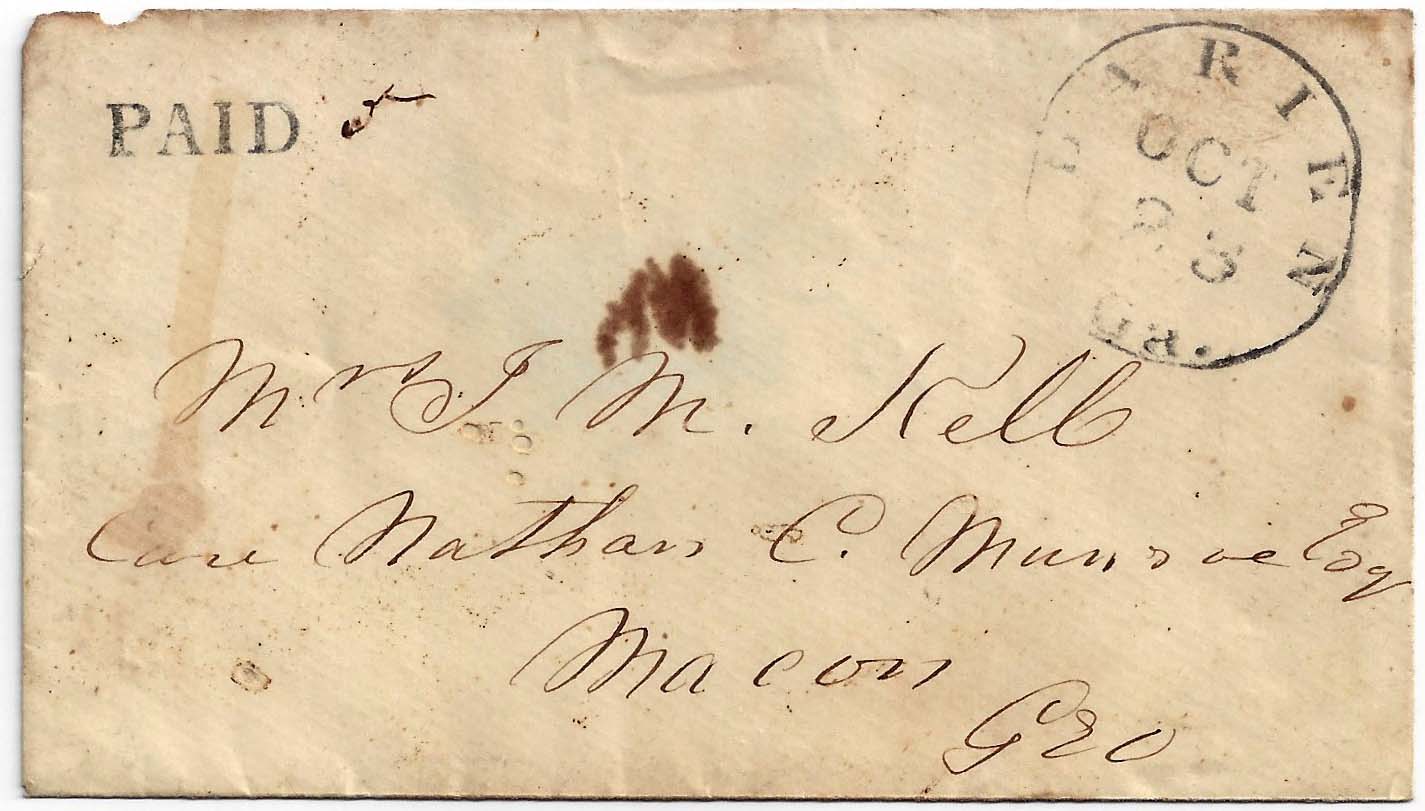 PAID 5
DARIEN
OCT
23
Ga.
Mrs J M. Kell
Care Nathan C. Munroe Esq
Macon
Geo